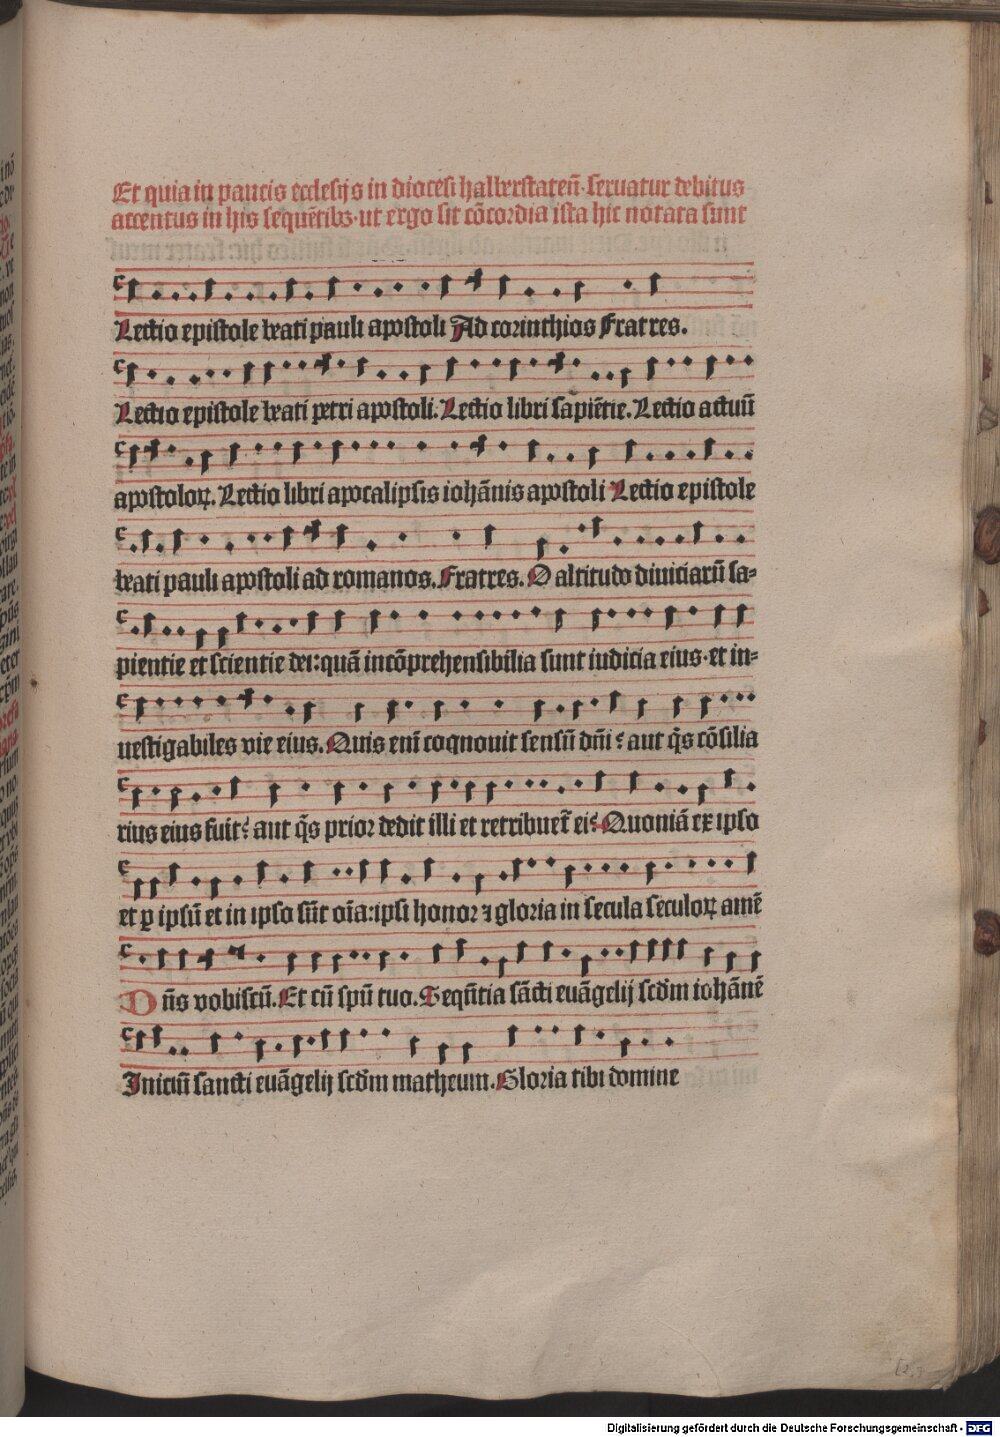 Et quia in paucis ecclesijs in diocesi halberstateñ· seruatur debitus
accentus in his sequẽtibꝫ· ut ergo sit cõcordia ista hic notata sunt
Lectio epistole beati pauli apostoli Ad corinthios Fratres.
Lectio epistole beati petri apostoli. Lectio libri sapiẽtie. Lectio actuũ
apostoloꝝ. Lectio libri apocalipsis iohãnis apostoli Lectio epistole
beati pauli apostoli ad romanos. Fratres. O altitudo diuiciarũ sa-
pientie et scientie dei: quã incõprehensibilia sunt iudicia eius· et in-
uestigabiles vie eius. Quis enī cognouit sensũ dñi? aut q̃s cõsilia
rius eius fuit? aut q̃s prior dedit illi et retribuet̃ ei? Quoniã ex ipso
et ꝑ ipsũ et in ipso sũt oĩa: ipsi honor ⁊ gloria in secula seculoꝝ amẽ
Dñs vobiscũ. Et cũ spũ tuo. Seqũtia sãcti euãgelij scd̃m iohãnẽ
Iniciũ sancti euãgelij scd̃m matheum. Gloria tibi domine
Digitalisierung gefördert durch die Deutsche Forschungsgemeinschaft - DFG